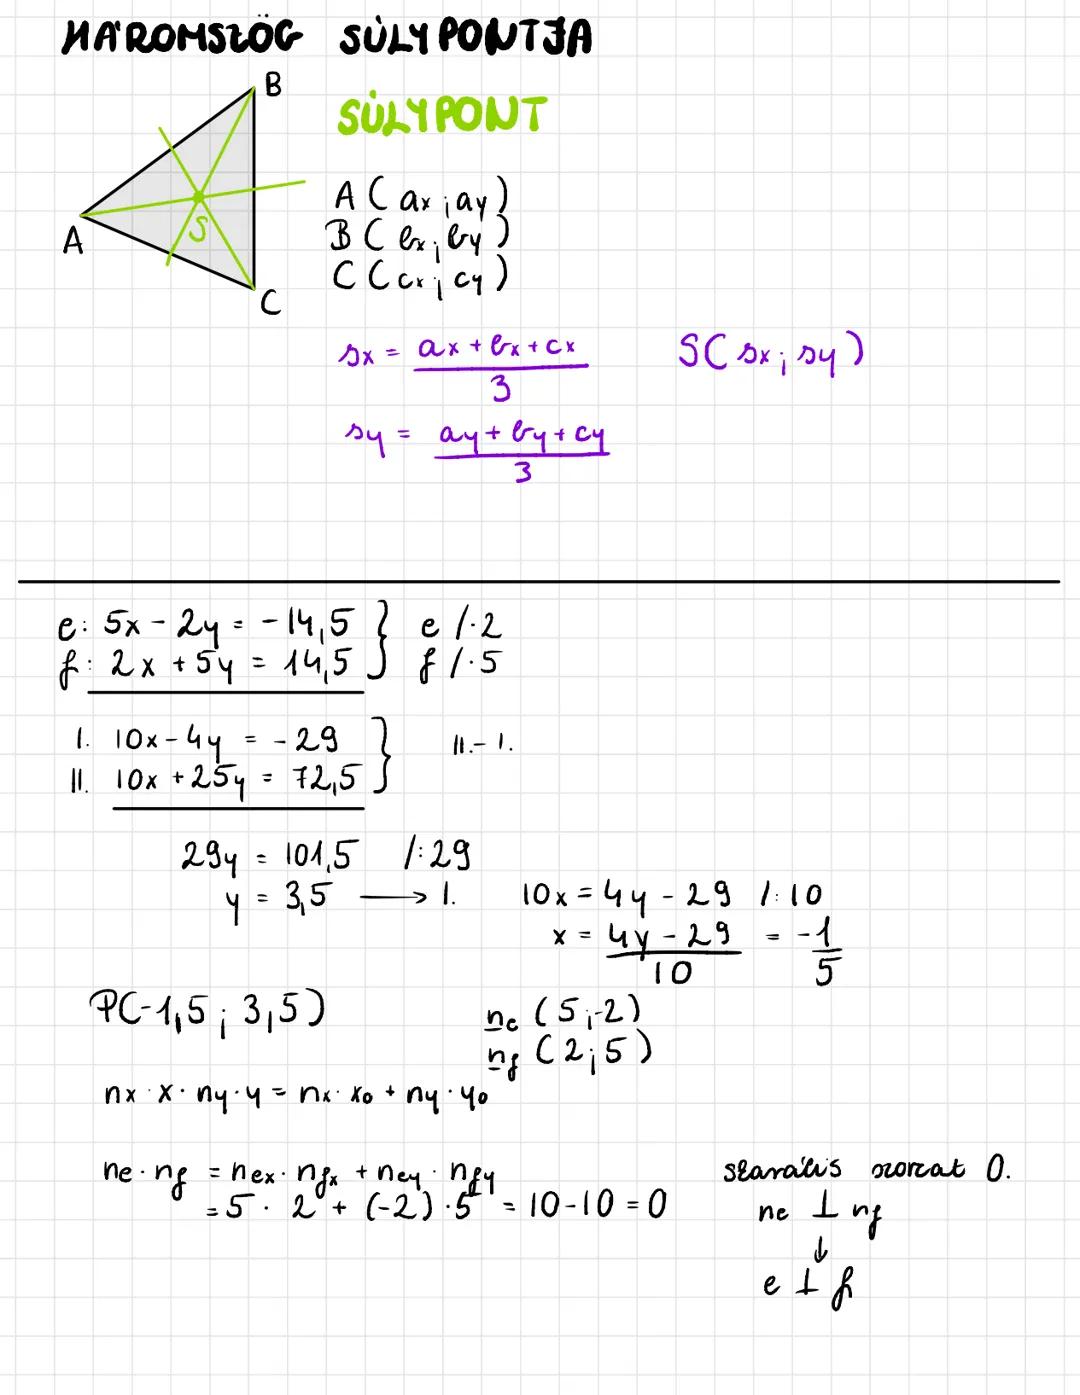 HÁROMSZÖG SÚLYPONTJA
B
SÚLYPONT
A
S
C
A(ax;ay)
B(bx;by)
C(cx;cy)
sx = ax+bx+cx / 3
S(sx;sy)
sy = ay+by+cy / 3
e: 5x-2y = -14,5 } e /·2
f: 2x+5y = 14,5 } f /·5
I. 10x-4y = -29 } II.-I.
II. 10x+25y = 72,5 }
29y = 101,5 /:29
y = 3,5 → I.
10x = 4y-29 /:10
x = 4y-29 / 10 = -1/5
P(-1,5;3,5)
ne (5;-2)
nf (2;5)
nx·x·ny·y = nx·x0+ny·y0
ne·nf = nex·nfx+ney·nfy
= 5·2+(-2)·5 = 10-10 = 0
skarális szorzat 0.
ne ⊥ nf
↓
e ⊥ f